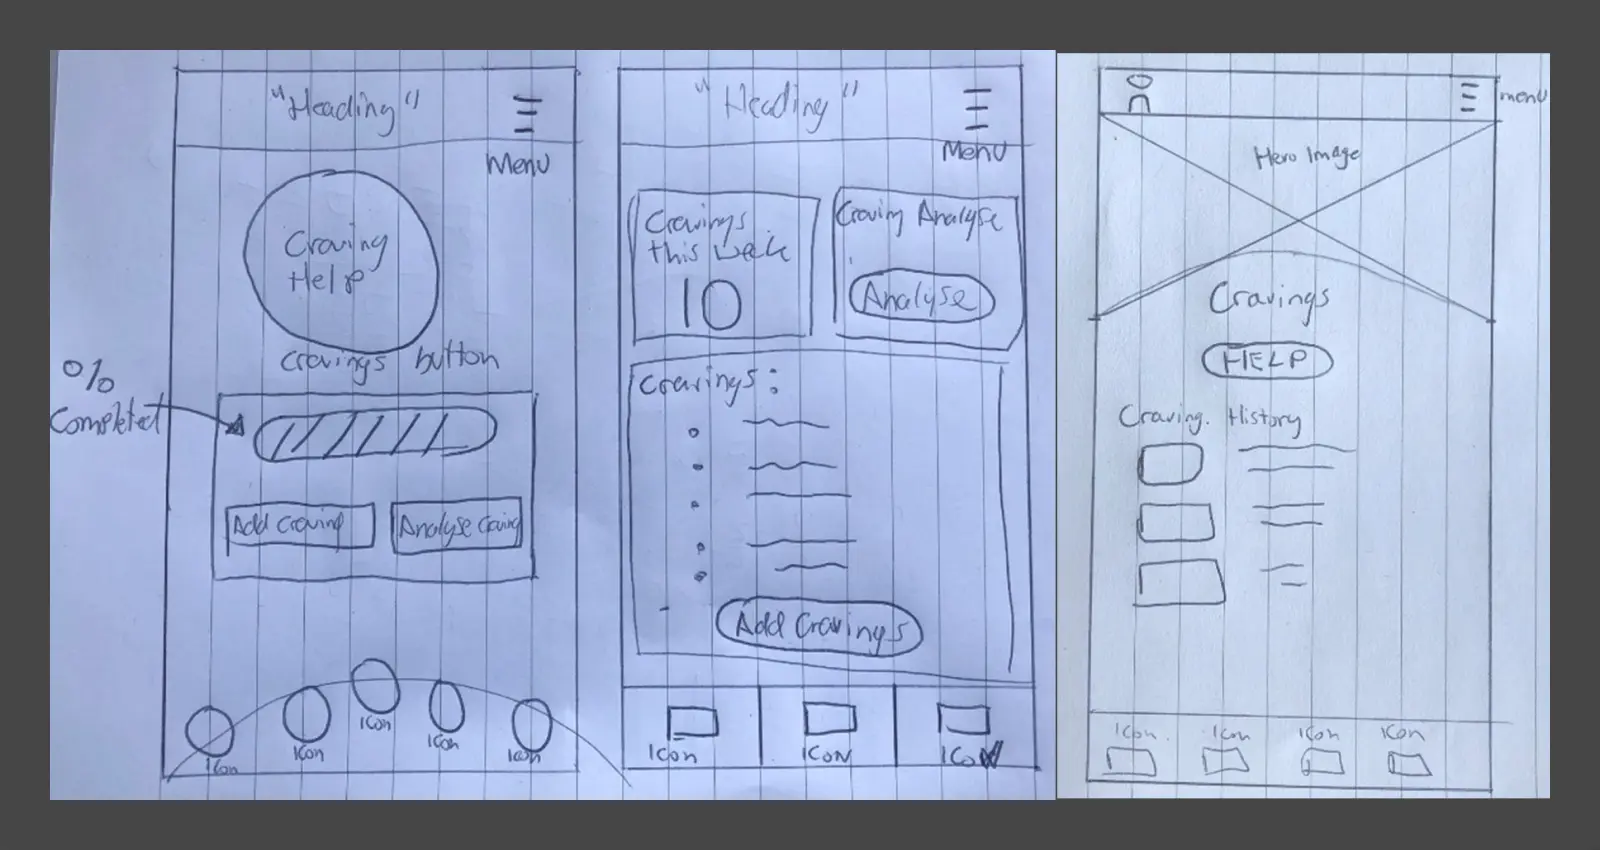 "Heading"
Menu
Craving
Help
cravings button
%
Completed
Add Craving
Analyse Craving
Icon
Icon
Icon
Icon
Icon
"Heading"
Menu
Cravings
this week
10
Craving Analyse
Analyse
Cravings:
Add Cravings
Icon
ICON
ICON
menu
Hero Image
Cravings
HELP
Craving. History
Icon
Icon
Icon
Icon